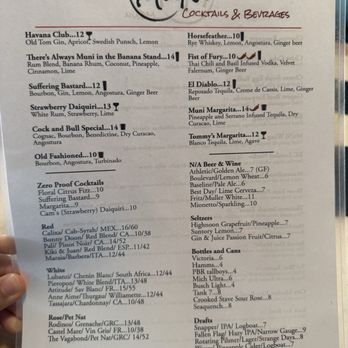 COCKTAILS & BEVRAGES
Havana Club...12
Old Tom Gin, Apricot, Swedish Punsch, Lemon
There's Always Muni in the Banana Stand...14
Rum Blend, Banana Rhum, Coconut, Pineapple,
Cinnamon, Lime
Suffering Bastard...12
Bourbon, Gin, Lemon, Angostura, Ginger Beer
Strawberry Daiquiri...13
White Rum, Strawberry, Lime
Cock and Bull Special...14
Cognac, Bourbon, Benedictine, Dry Curacao,
Angostura
Old Fashioned...10
Bourbon, Angostura, Turbinado
Zero Proof Cocktails
Floral Citrus Fizz...10
Suffering Bastard...9
Margarita...9
Cam's (Strawberry) Daiquiri...10
Red
Calixa/ Cab-Syrah/ MEX...16/60
Bonny Doon/ Red Blend/ CA...10/38
Pali/ Pinot Noir/ CA...14/52
Kiki & Juan/ Red Blend/ ESP...11/42
Maraia/Barbera/ITA...12/44
White
Lubanzi/ Chenin Blanc/ South Africa...12/44
Pieropon/ White Blend/ITA...13/48
Attitude/ Sav Blanc/ FR...15/55
Anne Aime/Thurgau/ Willamette...12/44
Tasajara/Chardonnay/ CA...10/48
Rose/Pet Nat
Rodinos/ Grenache/GRC...13/48
Castel Mare/ Vin Gris/ FR...10/38
The Vagabond/Pet Nat/GRC/ 14/52
Horsefeather...10
Rye Whiskey, Lemon, Angostura, Ginger beer
Fist of Fury...10
Thai Chili and Basil Infused Vodka, Velvet
Falernum, Ginger Beer
El Diablo...12
Reposado Tequila, Creme de Cassis, Lime, Ginger
Beer
Muni Margarita...14
Pineapple and Serrano Infused Tequila, Dry
Curacao, Lime
Tommy's Margarita...12
Blanco Tequila, Lime, Agave
N/A Beer & Wine
Athletic/Golden Ale...7 (GF)
Boulevard/Lemon Wheat...6
Baseline/Pale Ale...6
Best Day/ Lime Cerveza...7
Fritz/Muller White...11
Mionetto/Sparkling...10
Seltzers
Highnoon Grapefruit/Pineapple...7
Suntory Lemon...7
Gin & Juice Passion Fruit/Citrus...7
Bottles and Cans
Victoria...6
Hamms...4
PBR tallboys...4
Mich Ultra...6
Busch Light...4
Tank 7...8
Crooked Stave Sour Rose...8
Seaquench...8
Drafts
Snapper/ IPA/ Logboat...7
Fallen Flag/ Hazy IPA/Narrow Gauge...9
Rotating Pilsner/Lager/Strange Days...8